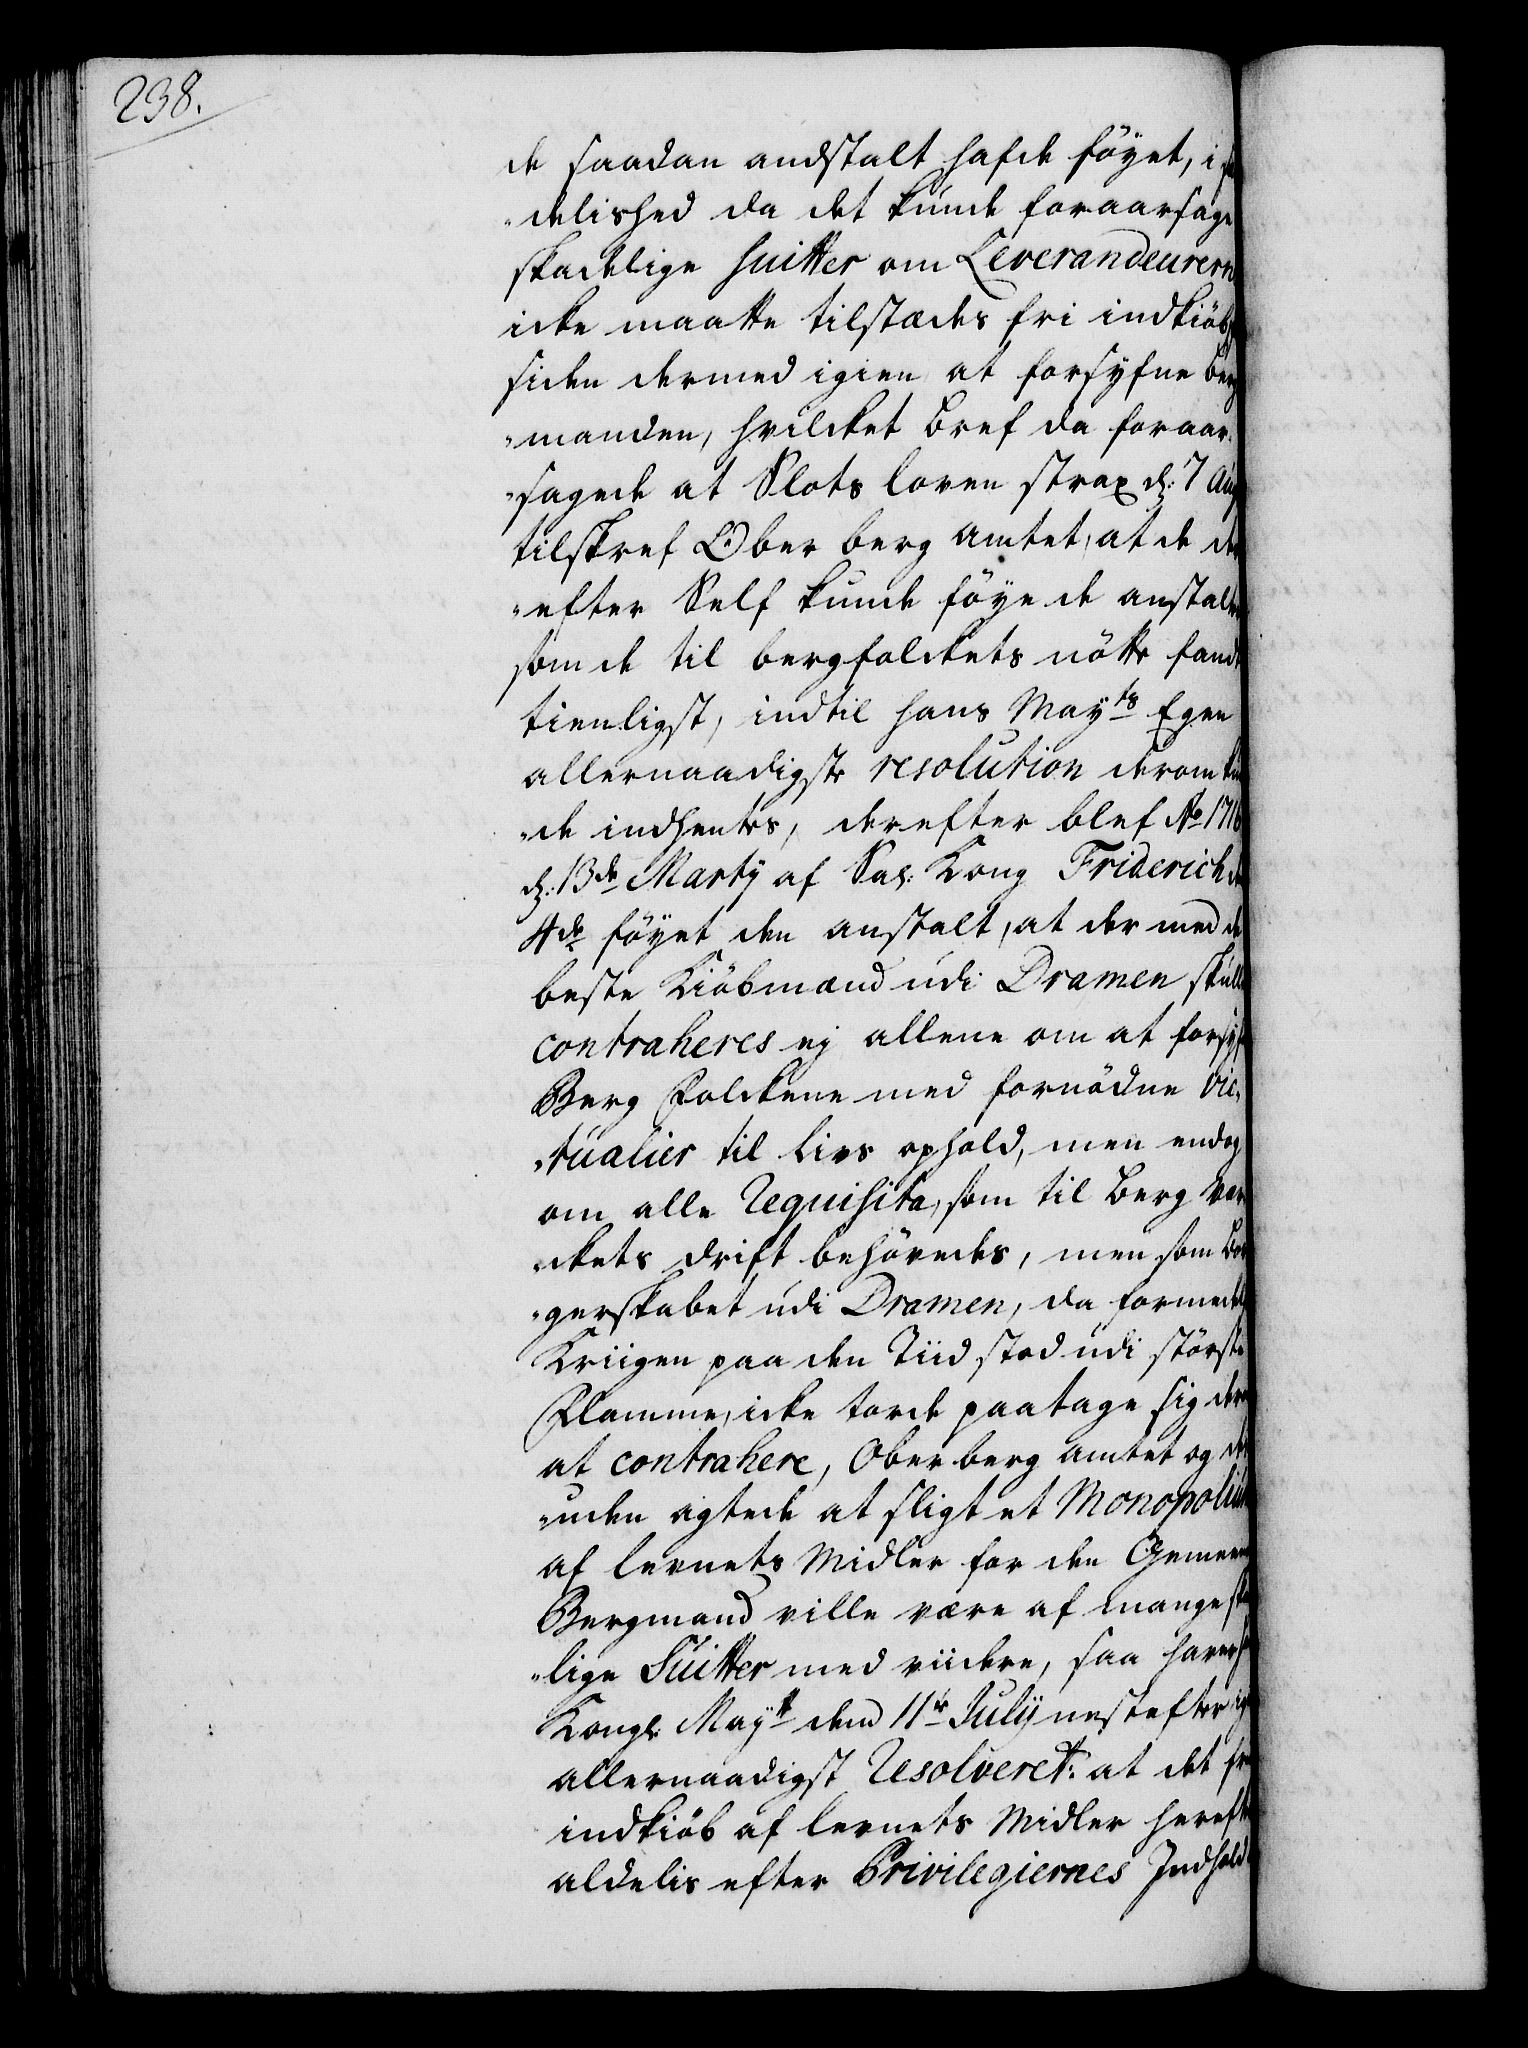 238.
de saadan andstalt hafde föyet, i
delished da det kunde foraarsage
skadelige Suitter om Leverandeurerne
icke maatte tilstædes fri indkiöb,
siden dermed igien at forsyfne berg
manden, hvilcket bref da foraar-
sagede at Slots loven strax d: 7 Aug
tilskref Ober berg amtet, at de der
efter Self kunde föye de anstalter
som de til bergfolckets nötte fandt
tienligst, indtil hans Mayts Egen
allernaadigste resolution derom kun
de indhentes, derefter blef Ao 1716
d: 13de Marty af Sal: Kong Friderich de
4de föyet den anstalt, at der med de
beste Kiöbmænd udi Dramen skulle
contraheres ej allene om at forsyf
Berg Folckene med fornödne Vic-
tualier til livs ophold, men endog
om alle Requisita, som til Berg Vær
ckets drift behövedes, men som Bor
gerskabet udi Dramen, da formedelst
Kriigen paa den Tiid stod udi störste
Flamme, icke torde paatage sig der
at contrahere, Ober berg amtet og des
uden agtede at sligt et Monopolium
af levnets Midler for den Gemeene
Bergmand ville være af mange ska
lige Suitter med viidere, saa haver
Kongl: Mayt dend 11te July nest efter
allernaadigst Resolveret: at det frie
indkiöb af levnets Midler herefter
aldelis efter Privilegiernes Indhold